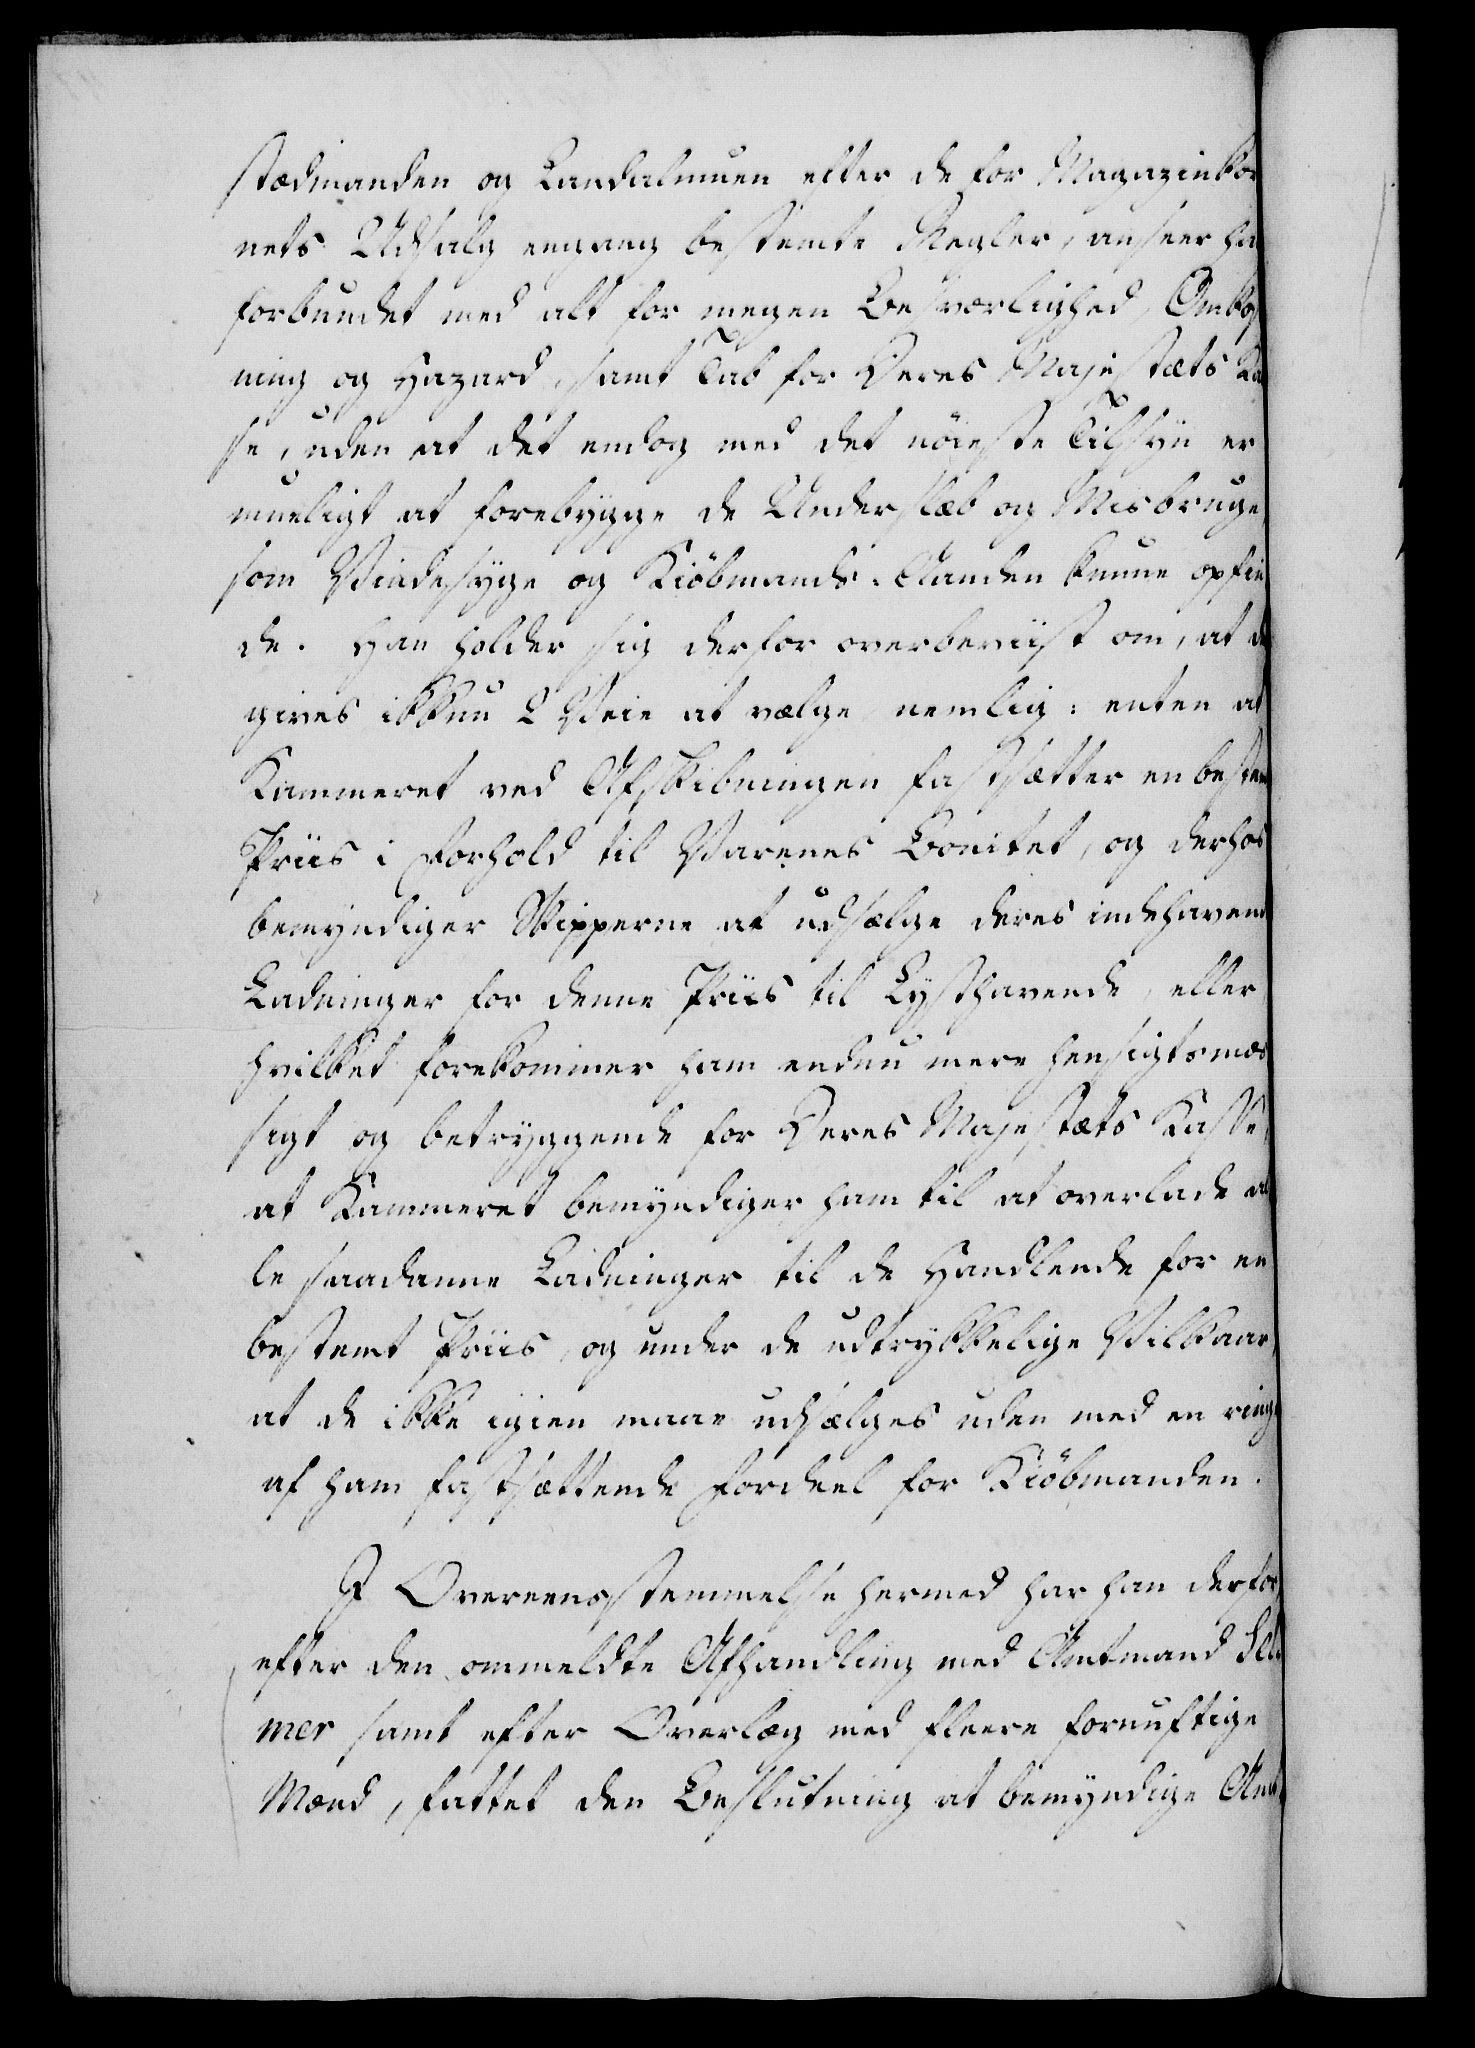 stædmanden og Landalmuen efter de for Magazinkor
nets Udsalg engang bestemte Regler, anseer ha
forbundet med alt for megen Besværlighed, Omkos
ning og Hazard, samt Tab for Deres Majestæts Ka
se, uden at det endog med det nöieste Tilsyn er
mueligt at forebygge de Underslæb og Misbruge,
som Vindesyge og Kiöbmands-Aanden kunne opfin
de. Han holder sig derfor overbeviist om, at de
gives ikkun 2 Veie at vælge nemlig: enten at
Kammeret ved Afskibningen fastsætter en bestem
Priis i Forhold til Varenes Bonitet, og derhos
bemyndiger Skipperne at udsælge deres indehavend
Ladninger for denne Priis til Lysthavende, eller
hvilket forekommer ham endnu mere hensigtsmæs
sigt og betryggende for Deres Majestæts Kasse,
at Kammeret bemyndiger ham til at overlade al
le saadanne Ladninger til de Handlende for en
bestemt Priis, og under de udtrykkelige Vilkaar,
at de ikke igien maae udsælges uden med en ringe
af ham fastsættende Fordeel for Kiöbmanden.
I Overeensstemmelse hermed har han derfor,
efter den ommeldte Afhandling med Amtmand
mer samt efter Overlæg med fleere fornuftige
Mænd, fattet den Beslutning at bemyndige Amt